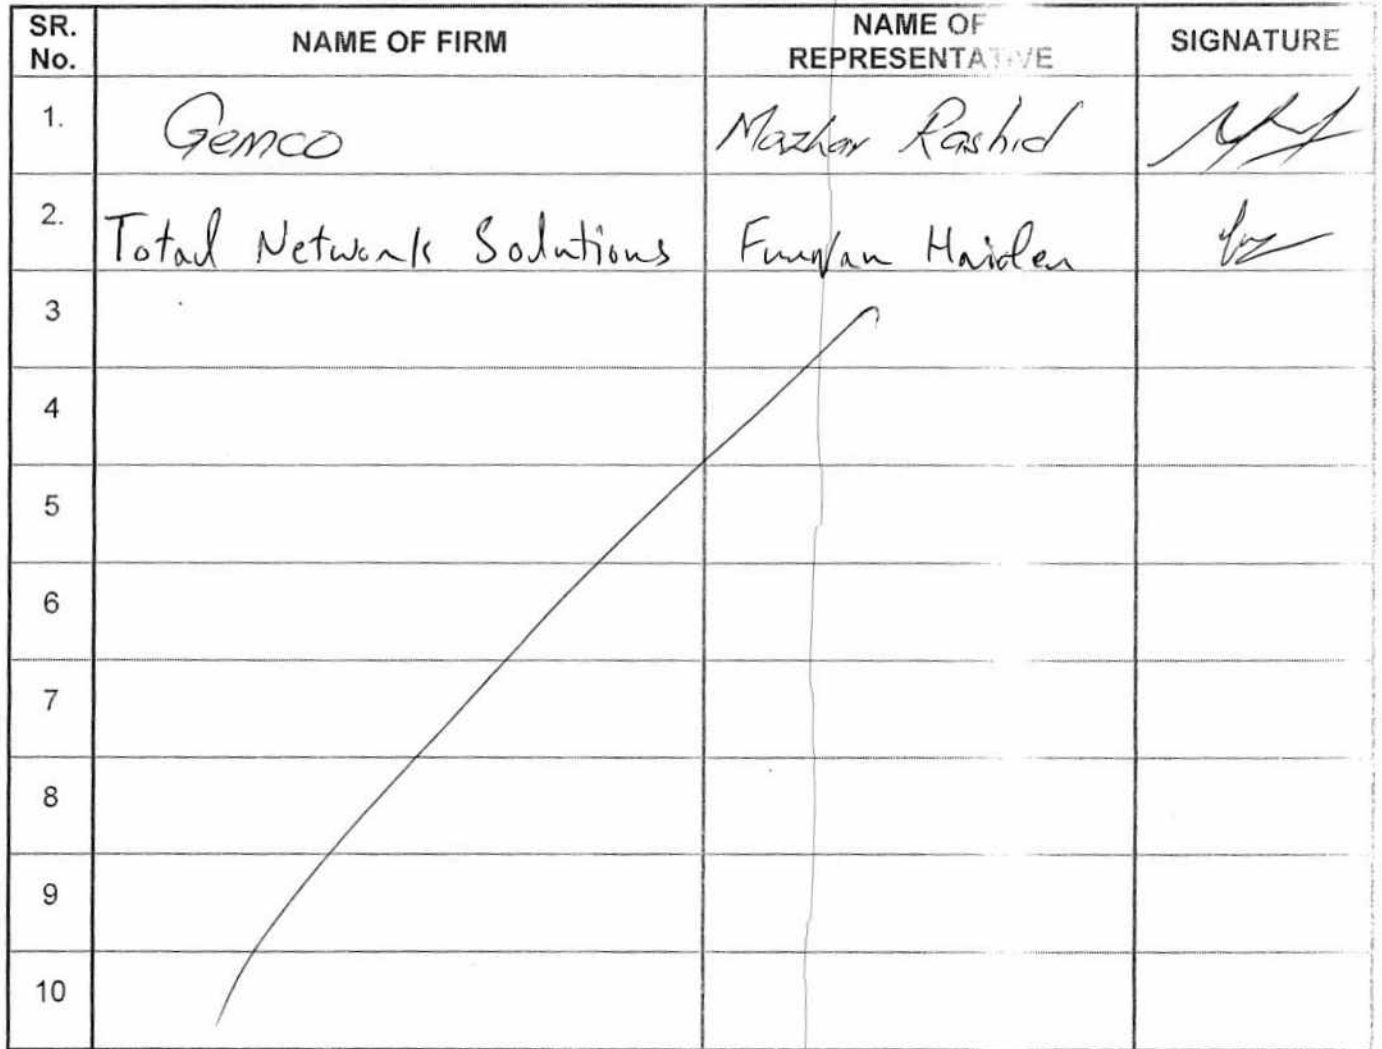 SR. No. NAME OF FIRM NAME OF REPRESENTATIVE SIGNATURE
1. Gemco Mazhar Rashid
2. Total Network Solutions Furqan Haider
3
4
5
6
7
8
9
10